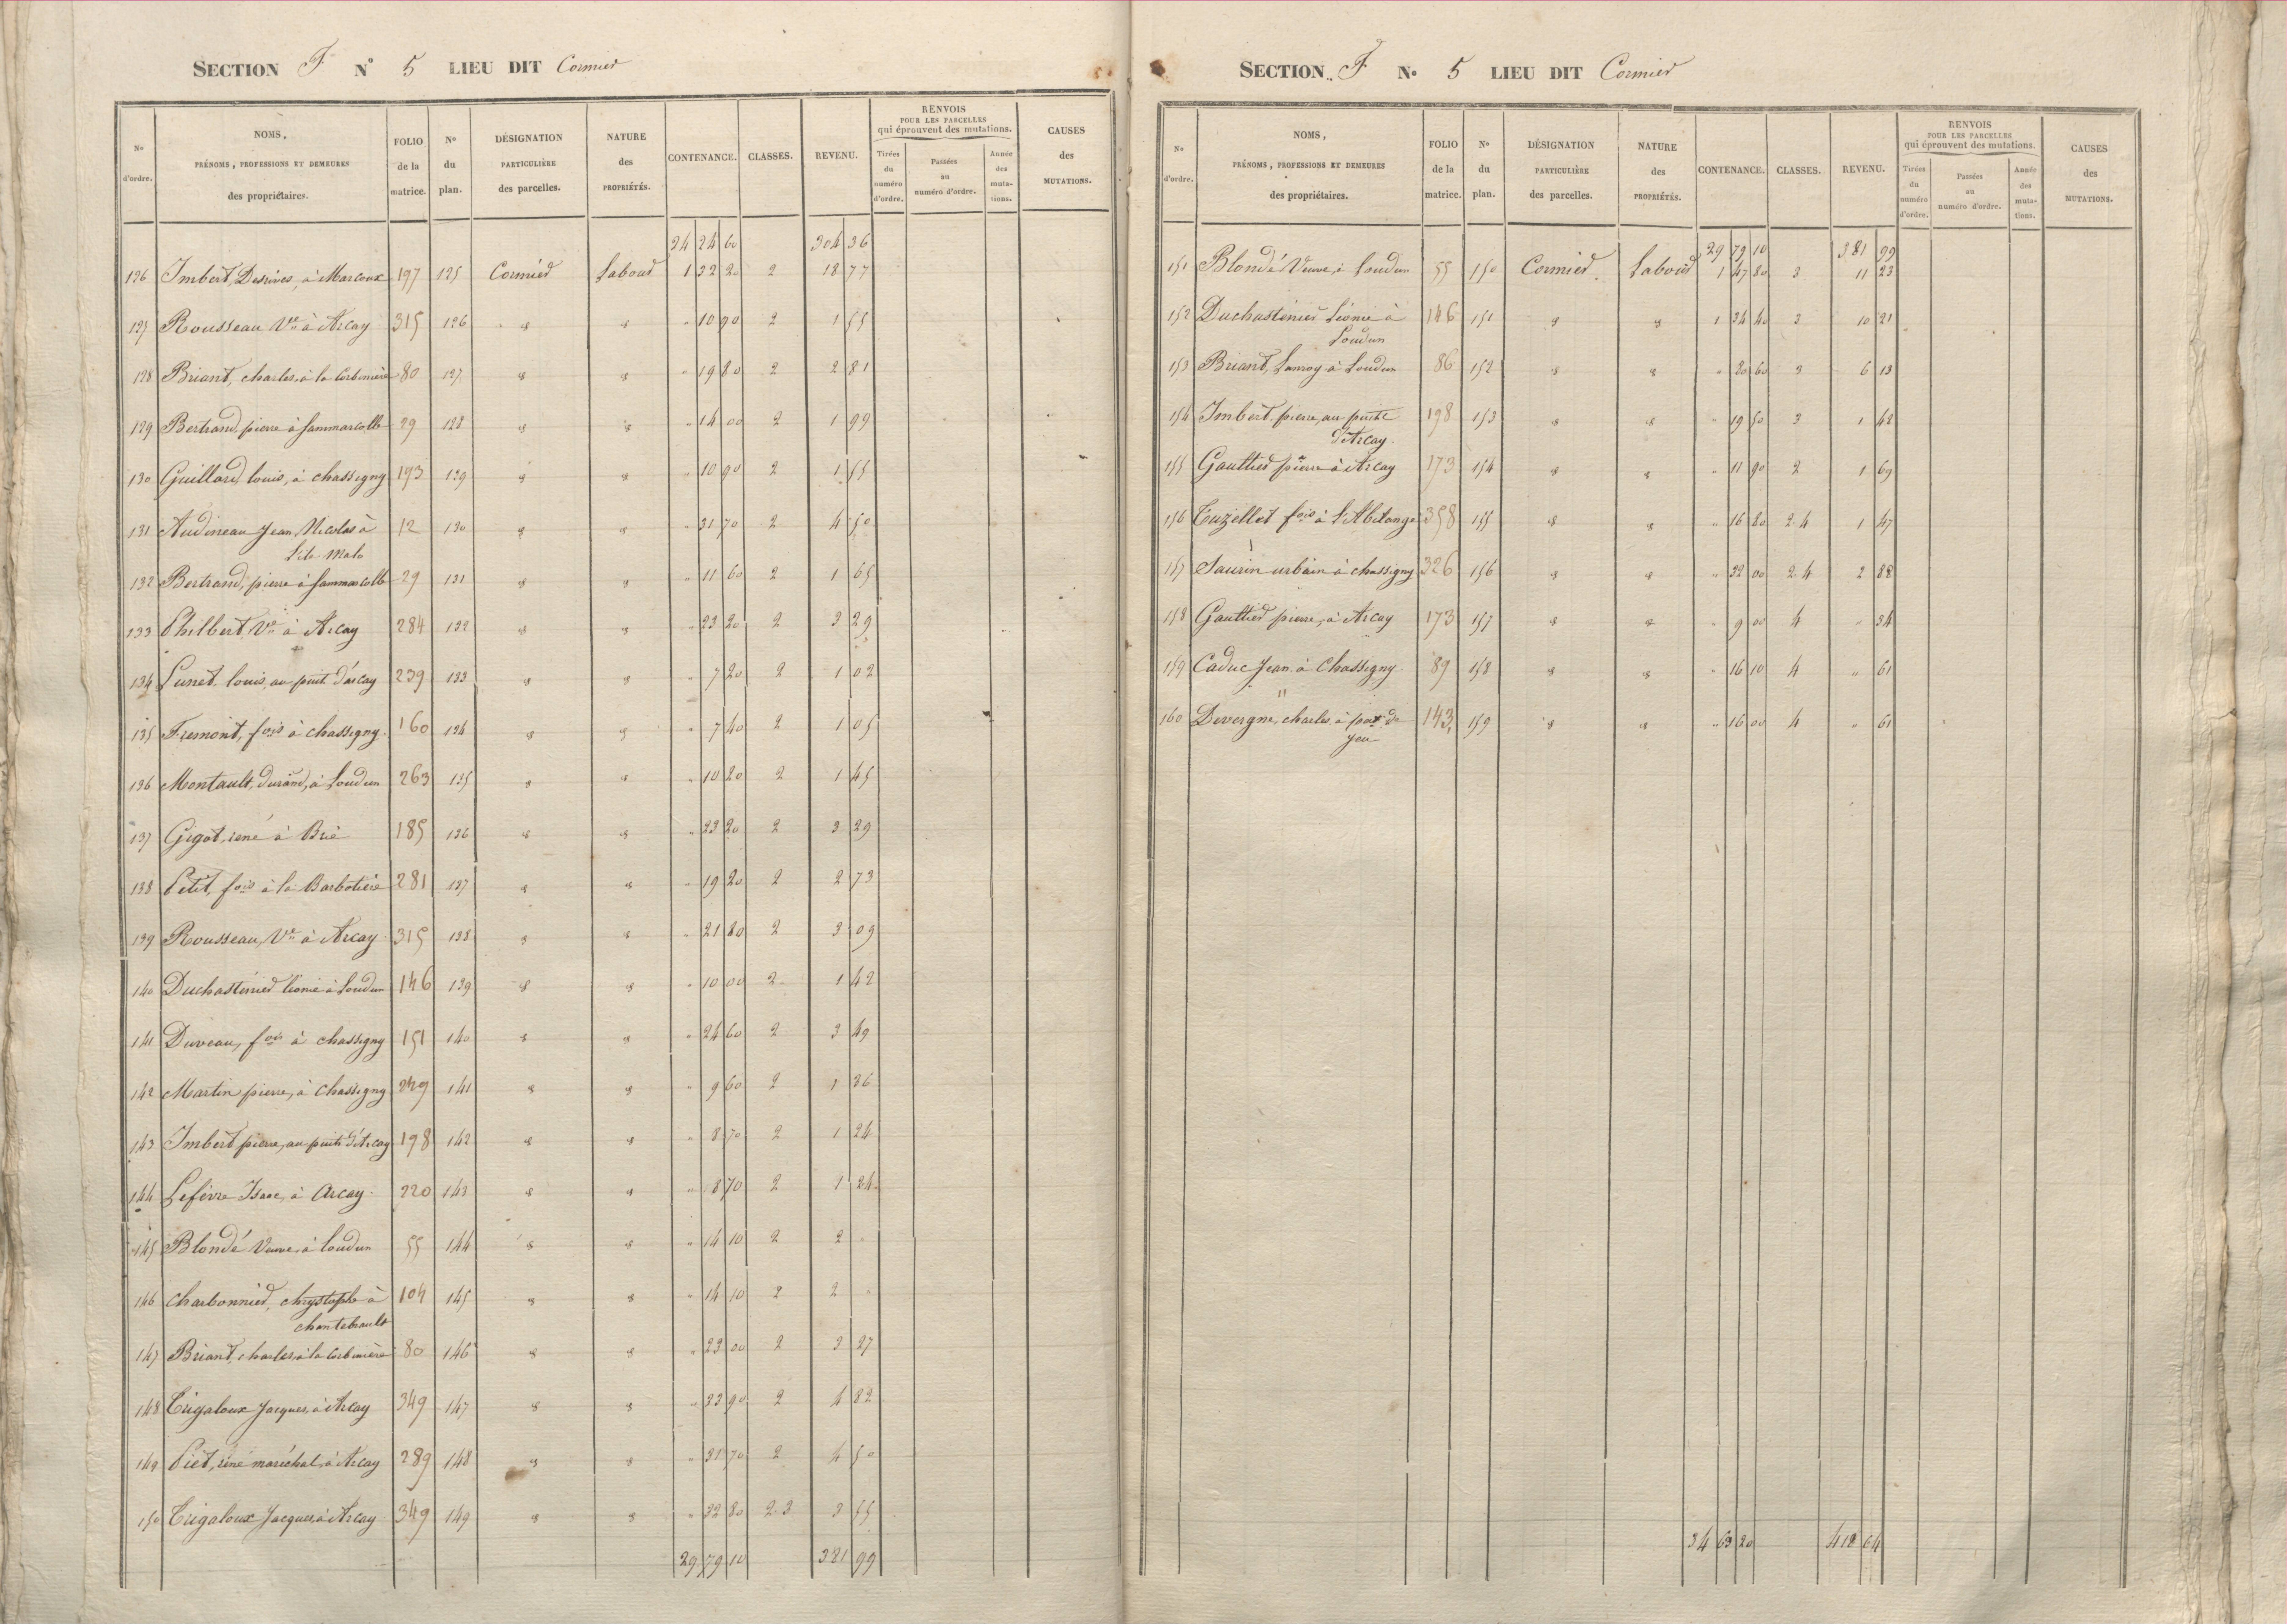 SECTION F N° 5 LIEU DIT Cormier
N° d'ordre. NOMS, PRÉNOMS, PROFESSIONS ET DEMEURES des propriétaires. FOLIO de la matrice. N° du plan. DÉSIGNATION PARTICULIÈRE des parcelles. NATURE des PROPRIÉTÉS. CONTENANCE. CLASSES. REVENU. RENVOIS POUR LES PARCELLES qui éprouvent des mutations. Tirées du numéro d'ordre. Passées au numéro d'ordre. Année des mutations. CAUSES des MUTATIONS.
24 24 60 304 36
126 Imbert, Desrives, à Marcoux 197 125 Cormier Labour 1 32 20 2 18 77
127 Rousseau Ve à Arcay 315 126 " " " 10 90 2 1 55
128 Briant, charles, à la Corbinière 80 127 " " " 19 80 2 2 81
129 Bertrand, pierre à Sammarcolle 29 128 " " " 14 00 2 1 99
130 Guillard louis, à chassigny 193 129 " " " 10 90 2 1 55
131 Audineau Jean Nicolas à 12 130 " " " 31 70 2 4 50
132 Bertrand, pierre à Sammarcolle 29 131 " " " 11 60 2 1 65
133 Philbert Ve à Arcay 284 132 " " " 23 20 2 3 29
134 Lunet louis, au puit d'arcay 239 133 " " " 7 20 2 1 02
135 Fremont, fois à chassigny 160 134 " " " 7 40 2 1 05
136 Montault, durand, à Loudun 263 135 " " " 10 20 2 1 45
137 Gigot, rené à Brie 185 136 " " " 23 20 2 3 29
138 Petit, fois à la Barbotière 281 137 " " " 19 20 2 2 73
139 Rousseau, Ve à Arcay 315 138 " " " 21 80 2 3 09
140 Duchastenier léonie à Loudun 146 139 " " " 10 00 2 1 42
141 Duveau, fois à chassigny 151 140 " " " 24 60 2 3 49
142 Martin pierre, à Chassigny 249 141 " " " 9 60 2 1 36
143 Imbert pierre, au puits d'Arcay 198 142 " " " 8 70 2 1 24
144 Lefèvre Isaac, à Arcay 220 143 " " " 8 70 2 1 24
145 Blondé Veuve, à loudun 55 144 " " " 14 10 2 2 "
146 Charbonnier, chrystophe à 104 145 " " " 14 10 2 2 "
chantebrault
147 Briant, charles, à la Corbinière 80 146 " " " 23 00 2 3 27
148 Trigaloux Jacques, à Arcay 349 147 " " " 33 90 2 4 82
149 Piet, rené maréchal, à Arcay 289 148 " " " 31 70 2 4 50
150 Trigaloux Jacques, à Arcay 349 149 " " " 32 80 2.3 3 55
29 79 10 381 99
SECTION F N° 5 LIEU DIT Cormier
N° d'ordre. NOMS, PRÉNOMS, PROFESSIONS ET DEMEURES des propriétaires. FOLIO de la matrice. N° du plan. DÉSIGNATION PARTICULIÈRE des parcelles. NATURE des PROPRIÉTÉS. CONTENANCE. CLASSES. REVENU. RENVOIS POUR LES PARCELLES qui éprouvent des mutations. Tirées du numéro d'ordre. Passées au numéro d'ordre. Année des mutations. CAUSES des MUTATIONS.
29 79 10 381 99
151 Blondé Veuve, à Loudun 55 150 Cormier Labour 1 47 80 3 11 23
152 Duchastenier Léonie à 146 151 " " 1 34 40 3 10 21
Loudun
153 Briant, Lanroy à Loudun 86 152 " " " 80 60 3 6 13
154 Imbert, pierre, au puits 198 153 " " " 19 50 3 1 48
d'Arcay
155 Gaultier pierre à Arcay 173 154 " " " 11 90 2 1 69
156 Tuzellet fois à l'Abitange 358 155 " " " 16 80 2.4 1 47
157 Saurin urbain à chassigny 326 156 " " " 32 00 2.4 2 88
158 Gaultier pierre, à Arcay 173 157 " " " 9 00 4 " 34
159 Caduc Jean à Chassigny 89 158 " " " 16 10 4 " 61
160 Devergne, charles, à pas de 143 159 " " " 16 00 4 " 61
Jeu
34 63 20 418 64